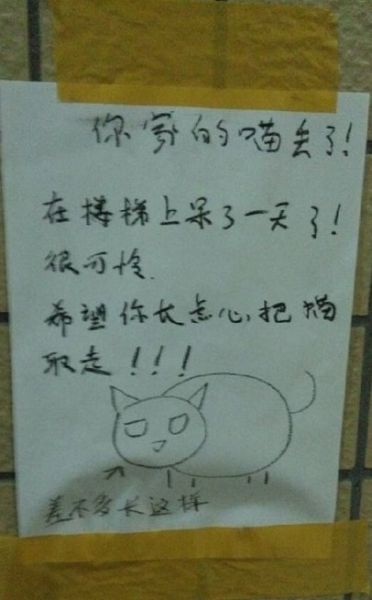 你家的喵丢了!
在楼梯上呆了一天了!
很可怜.
希望你长点心,把猫
取走!!!
差不多长这样